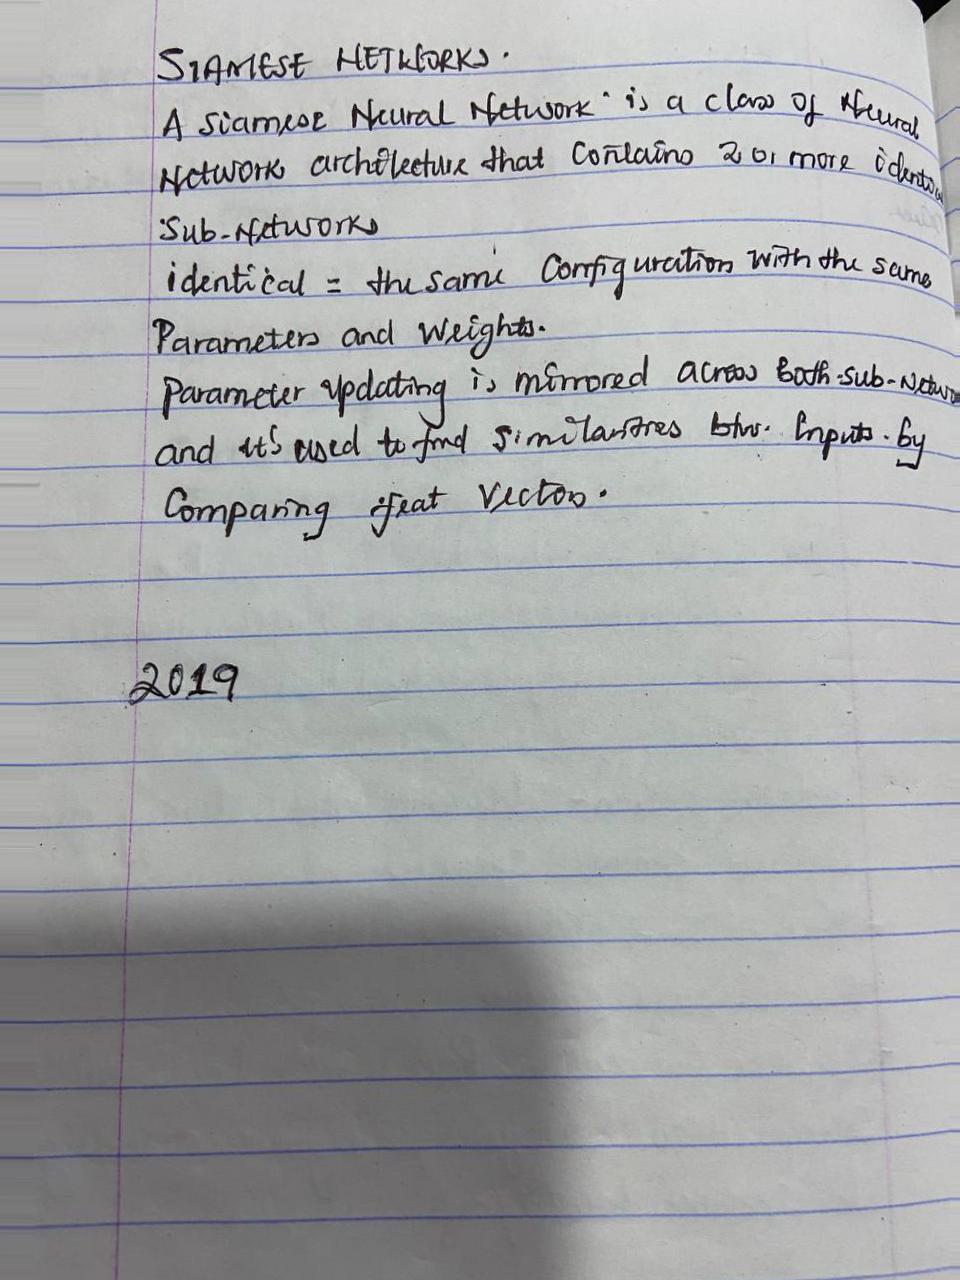 SIAMESE NETWORKS.
A Siamese Neural Network is a class of Neural
Network architecture that contains 2 or more identical
Sub-Networks
identical = the same Configuration with the same
Parameters and Weights.
Parameter updating is mirrored across both sub-Networ
and it's used to find similarities btw. Inputs by
Comparing feat vectors.
2019